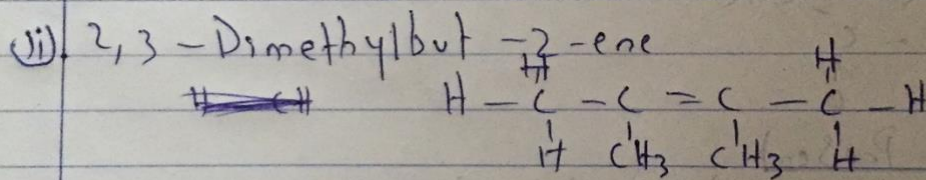 (ii). 2,3-Dimethylbut-2-ene
H H
H - C - C = C - C - H
H CH3 CH3 H